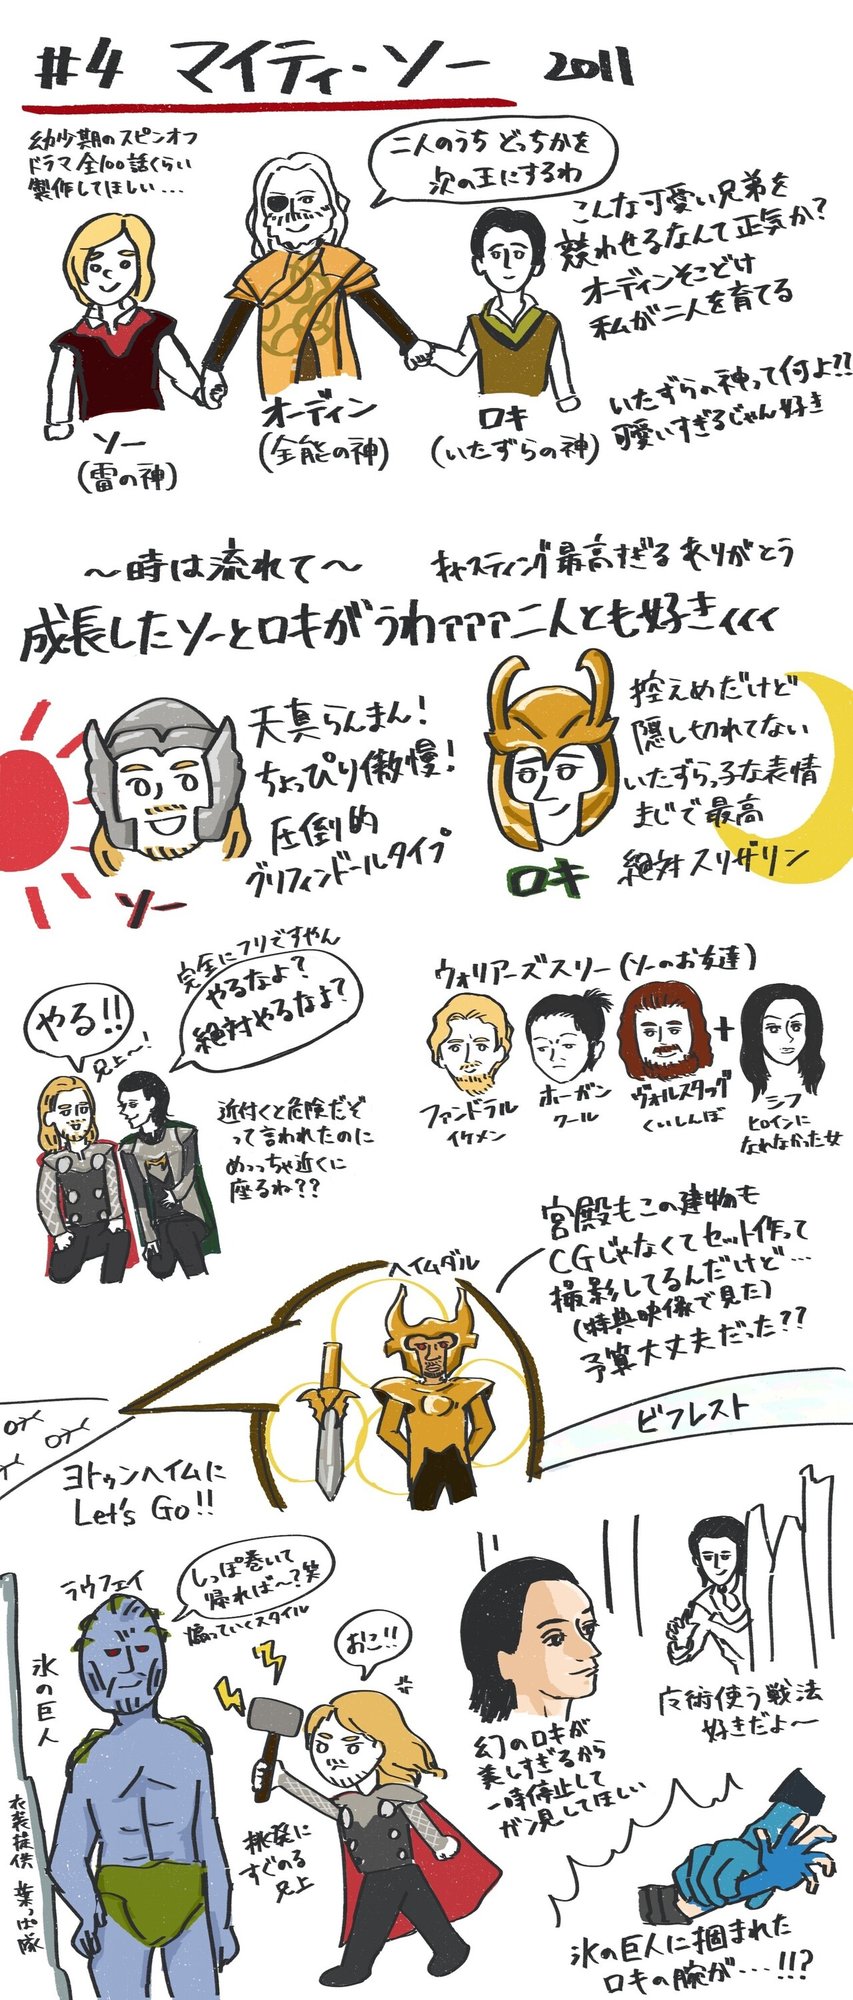 #4 マイティ・ソー 2011
幼少期のスピンオフ
ドラマ全100話くらい
製作してほしい…
二人のうち どっちかを
次の王にするわ
こんな可愛い兄弟を
競わせるなんて正気か?
オーディンそこどけ
私が二人を育てる
ソー
(雷の神)
オーディン
(全能の神)
ロキ
(いたずらの神)
いたずらの神って何よ!!
可愛いすぎるじゃん好き
～時は流れて～
キャスティング最高すぎる ありがとう
成長したソーとロキがうわァァァ二人とも好きィィィ
天真らんまん!
ちょっぴり傲慢!
圧倒的
グリフィンドールタイプ
ソー
控えめだけど
隠し切れてない
いたずらっ子な表情
まじで最高
絶対スリザリン
ロキ
やる!!
兄上〜!
完全にフリですやん
やるなよ?
絶対やるなよ?
近付くと危険だぞ
って言われたのに
めっちゃ近くに
座るね??
ウォリアーズスリー(ソーのお友達)
ファンドラル
イケメン
ホーガン
クール
ヴォルスタッグ
くいしんぼ
+
シフ
ヒロインに
なれなかった女
宮殿もこの建物も
CGじゃなくてセット作って
撮影してるんだけど…
(特典映像で見た)
予算大丈夫だった??
ヘイムダル
ビフレスト
ヨトゥンヘイムに
Let's Go!!
ラウフェイ
しっぽ巻いて
帰れば〜?笑
煽っていくスタイル
氷の巨人
衣装提供 葉っぱ隊
おこ!!
挑発に
すぐのる
兄上
幻のロキが
美しすぎるから
一時停止して
ガン見してほしい
魔術使う戦法
好きだよ〜
氷の巨人に掴まれた
ロキの腕が…!!?